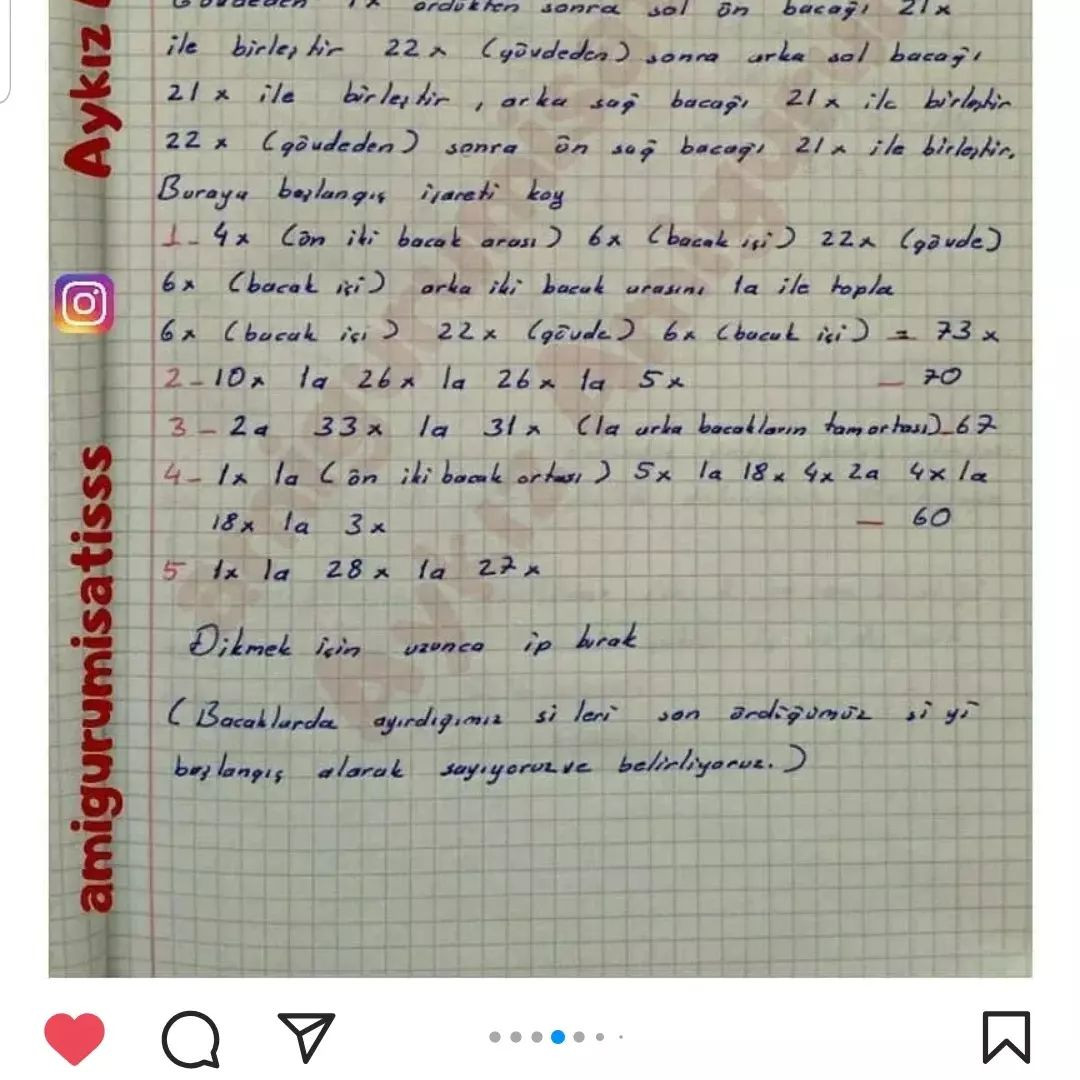 Gövdeden 1x ördükten sonra sol ön bacağı 21x
ile birleştir 22x (gövdeden) sonra arka sol bacağı
21x ile birleştir, arka sağ bacağı 21x ile birleştir
22x (gövdeden) sonra ön sağ bacağı 21x ile birleştir.
Buraya başlangış işareti koy
1- 4x (ön iki bacak arası) 6x (bacak içi) 22x (gövde)
6x (bacak içi) arka iki bacak arasını 1a ile topla
6x (bacak içi) 22x (gövde) 6x (bacak içi) = 73x
2- 10x 1a 26x 1a 26x 1a 5x - 70
3- 2a 33x 1a 31x (1a arka bacakların tam ortası) - 67
4- 1x 1a (ön iki bacak ortası) 5x 1a 18x 4x 2a 4x 1a
18x 1a 3x - 60
5 1x 1a 28x 1a 27x
Dikmek için uzunca ip bırak
(Bacaklarda ayırdığımız si leri son ördüğümüz si yi
başlangış alarak sayıyoruz ve belirliyoruz.)
Aykız
amigurumisatisss